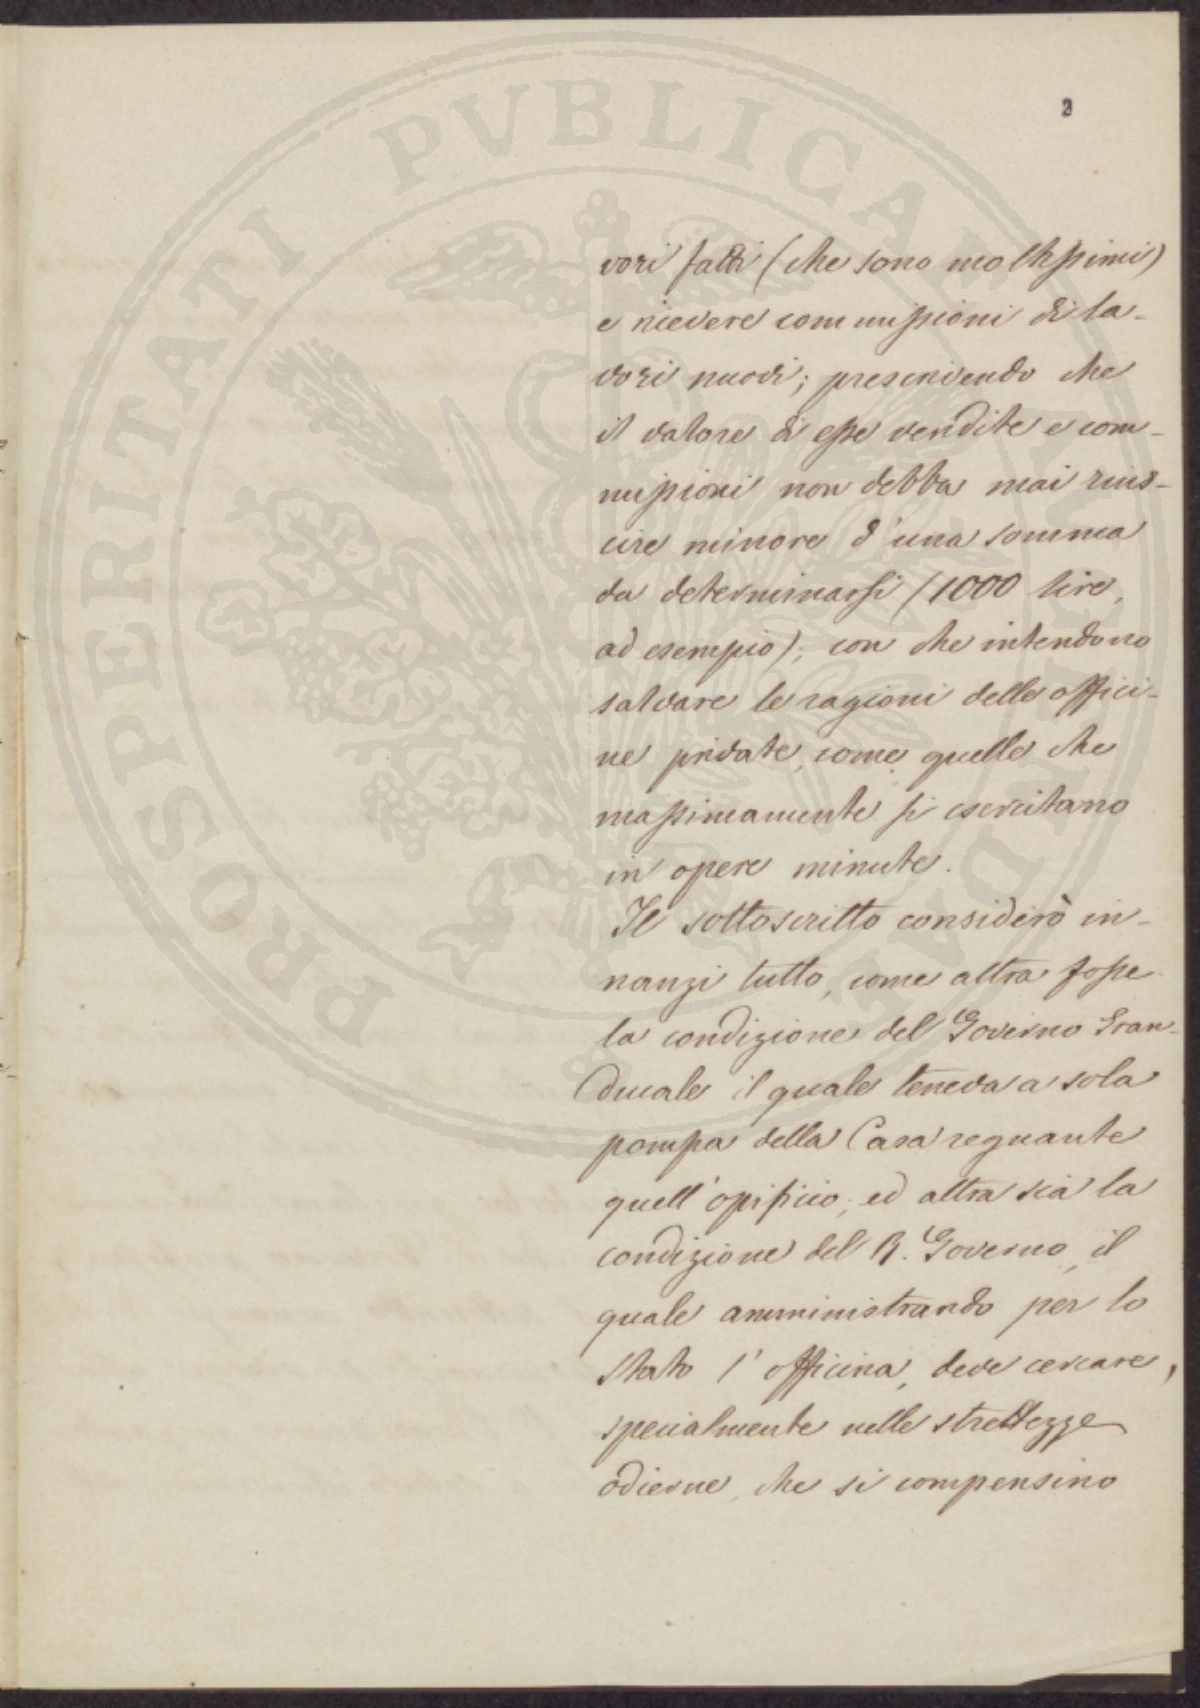 2
PROSPERITATI PVBLICAE
vori fatti (che sono moltissimi)
e ricevere commissioni di la-
vori nuovi; prescrivendo che
il valore di esse vendite e com-
missioni non debba mai rius-
cire minore d'una somma
da determinarsi (1000 lire,
ad esempio); con che intendono
salvare le ragioni delle offici-
ne private, come quelle che
massimamente si esercitano
in opere minute.
Il sottoscritto considerò in-
nanzi tutto, come altra fosse
la condizione del Governo Gran-
Ducale il quale teneva a sola
pompa della Casa regnante
quell'opificio; ed altra sia la
condizione del R. Governo, il
quale amministrando per lo
Stato l'officina, deve cercare,
specialmente nelle strettezze
odierne, che si compensino